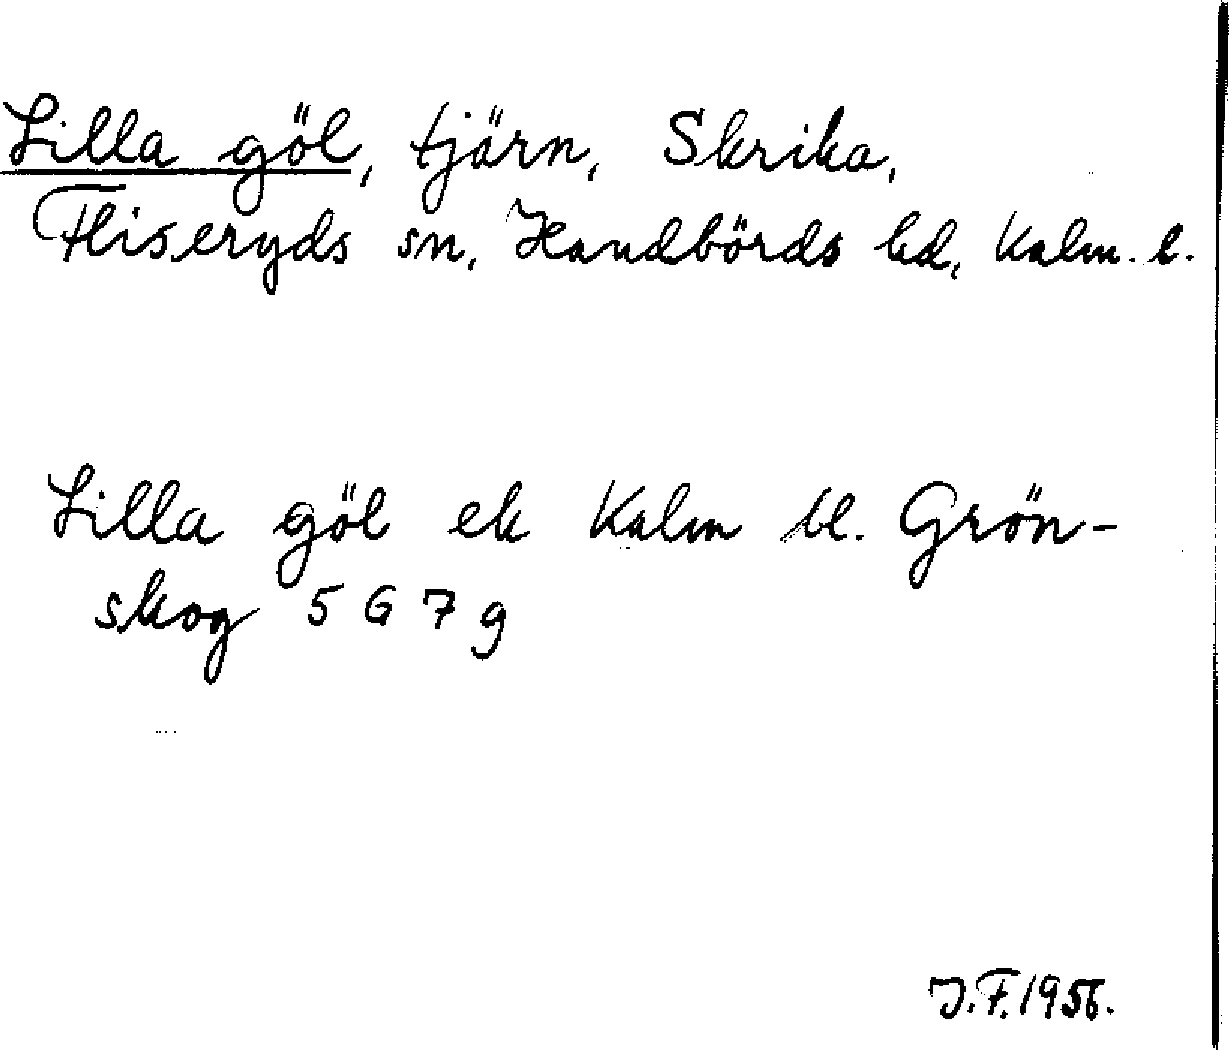 Lilla göl, tjärn, Skrika,
Fliseryds sn, Handbörds hd, Kalm. l.
Lilla göl ek Kalm bl. Grön-
skog 5 G 7 g
J.F. 1956.